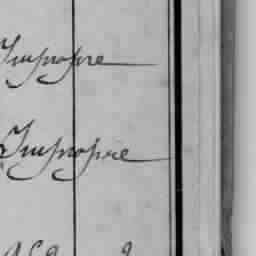 Impropre
Impropre